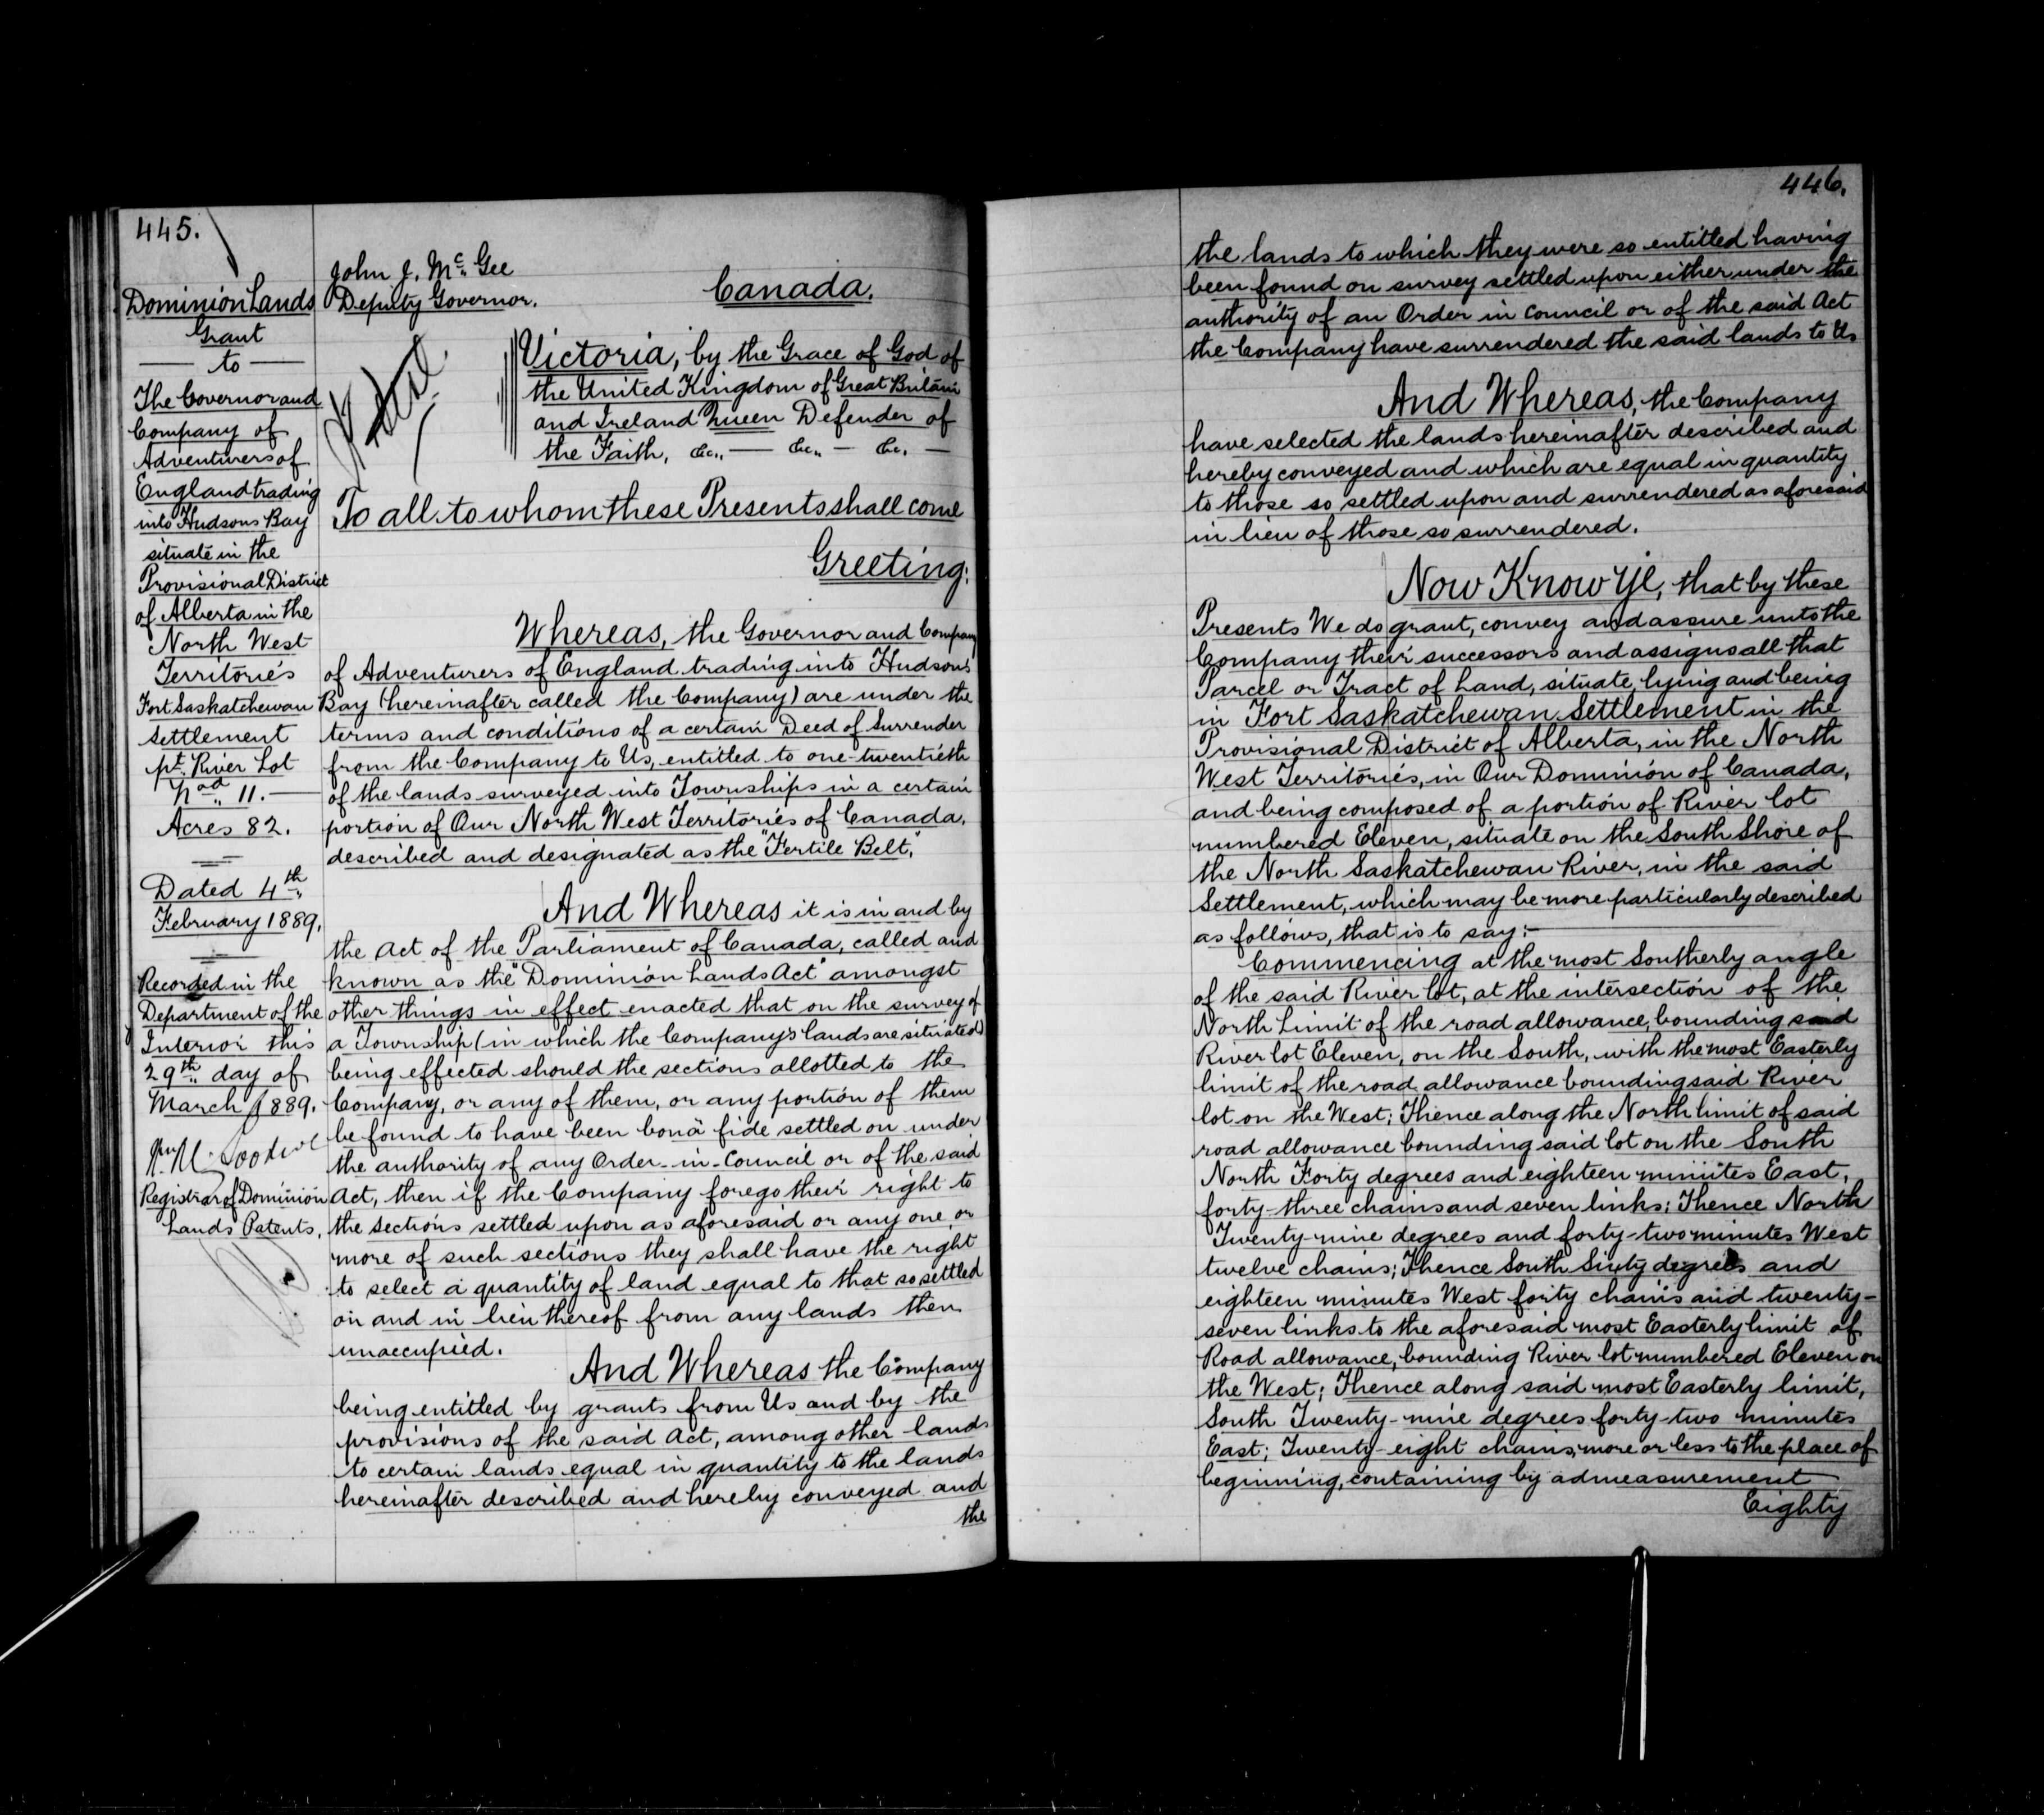 445.
Dominion Lands
Grant
to
The Governor and
Company of
Adventurers of
England trading
into Hudsons Bay
situate in the
Provisional District
of Alberta in the
North West
Territories
Fort Saskatchewan
Settlement
pt. River Lot
No. 11.
Acres 82.
Dated 4th
February 1889.
Recorded in the
Department of the
Interior this
29th day of
March 1889.
Registrar of Dominion
Lands Patents.
John J. Mc. Gee
Deputy Governor.
Canada.
Victoria, by the Grace of God of
the United Kingdom of Great Britain
and Ireland Queen Defender of
the Faith, &c., — &c., — &c. —
To all to whom these Presents shall come
Greeting:
Whereas, the Governor and Company
of Adventurers of England trading into Hudsons
Bay (hereinafter called the Company) are under the
terms and conditions of a certain Deed of Surrender
from the Company to Us, entitled to one-twentieth
of the lands surveyed into Townships in a certain
portion of Our North West Territories of Canada,
described and designated as the "Fertile Belt."
And Whereas it is in and by
the Act of the Parliament of Canada, called and
known as the "Dominion Lands Act" amongst
other things in effect enacted that on the survey of
a Township (in which the Company's lands are situated)
being effected should the sections allotted to the
Company, or any of them, or any portion of them
be found to have been bonâ fide settled on under
the authority of any Order-in-Council or of the said
Act, then if the Company forego their right to
the sections settled upon as aforesaid or any one or
more of such sections they shall have the right
to select a quantity of land equal to that so settled
on and in lieu thereof from any lands then
unoccupied.
And Whereas the Company
being entitled by grants from Us and by the
provisions of the said Act, among other lands
to certain lands equal in quantity to the lands
hereinafter described and hereby conveyed and
the
446.
the lands to which they were so entitled having
been found on survey settled upon either under the
authority of an Order in Council or of the said Act
the Company have surrendered the said lands to Us
And Whereas, the Company
have selected the lands hereinafter described and
hereby conveyed and which are equal in quantity
to those so settled upon and surrendered as aforesaid
in lieu of those so surrendered.
Now Know Ye, that by these
Presents We do grant, convey and assure unto the
Company their successors and assigns all that
Parcel or Tract of Land, situate, lying and being
in Fort Saskatchewan Settlement in the
Provisional District of Alberta, in the North
West Territories, in Our Dominion of Canada,
and being composed of a portion of River lot
numbered Eleven, situate on the South Shore of
the North Saskatchewan River, in the said
Settlement, which may be more particularly described
as follows, that is to say:—
Commencing at the most Southerly angle
of the said River lot, at the intersection of the
North Limit of the road allowance, bounding said
River lot Eleven, on the South, with the most Easterly
limit of the road allowance bounding said River
lot on the West; Thence along the North limit of said
road allowance bounding said lot on the South
North Forty degrees and eighteen minutes East,
forty-three chains and seven links; Thence North
Twenty-nine degrees and forty-two minutes West
twelve chains; Thence South Sixty degrees and
eighteen minutes West forty chains and twenty-
seven links to the aforesaid most Easterly limit of
Road allowance, bounding River lot numbered Eleven on
the West; Thence along said most Easterly limit,
South Twenty-nine degrees forty-two minutes
East; Twenty-eight chains, more or less to the place of
beginning, containing by admeasurement
Eighty